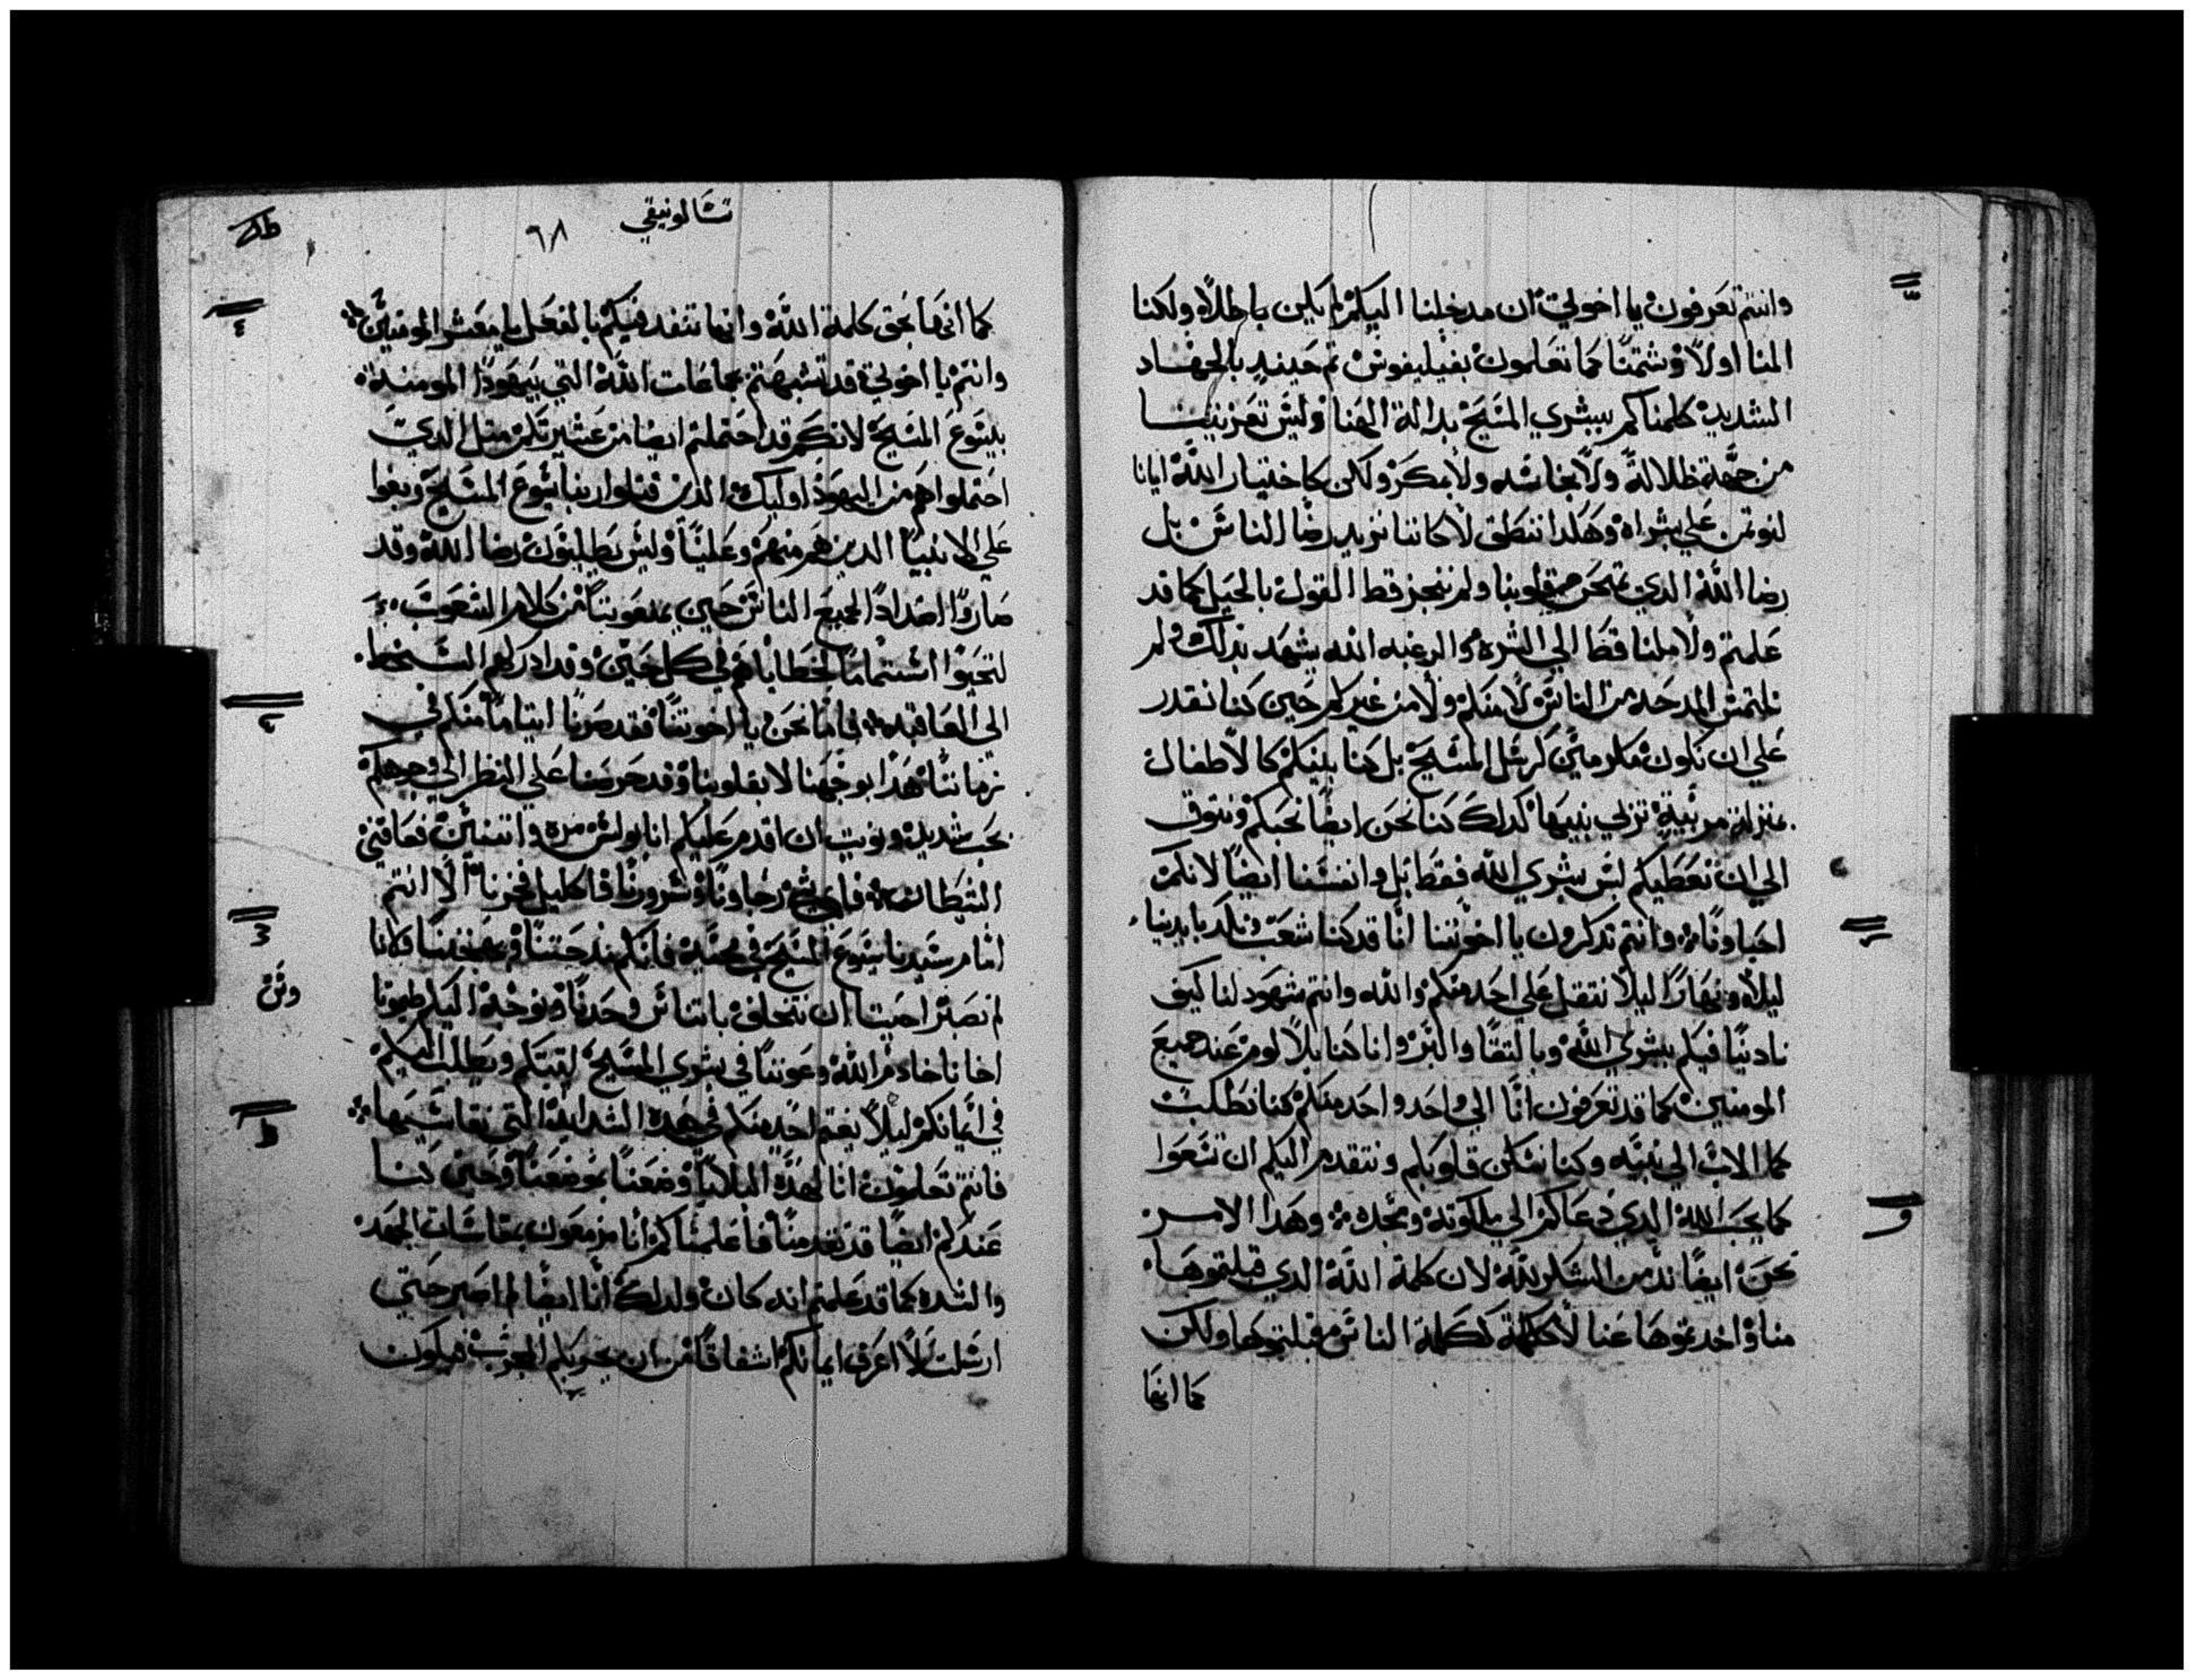 وانتم تعرفون يا اخوتي ان مدخلنا اليكم لم يكن باطلاً ولكنا
المنا اولاً وشتمنا كما تعلمون بفيليفوس ثم حينيدٍ بالجهاد
الشديد كلمناكم ببشري المسيح بدالة الهنا وليس تعزيتنا
من جهة ظلالة ولا نجاسه ولا بمكر ولكن كاختيار الله ايانا
لنوتمن علي بشراه وهكدا ننطق لا كاننا نريد رضا الناس بل
رضا الله الدي يمتحن قلوبنا ولم ننجز قط القول بالحيل كما قد
علمتم ولا ملنا قط الي الشره والرغبه الله يشهد بدلك ولم
نلتمس المدحه من الناس لا منكم ولا من غيركم حين كنا نقدر
علي ان نكون مكرمين كرسل المسيح بل كنا بينكم كالاطفال
بمنزلة مربية تربي بنيها كدلك كنا نحن ايضاً نحبكم ونتوق
الي ان نعطيكم ليس بشري الله فقط بل وانفسنا ايضاً لانكم
احباونا وانتم تدكرون يا اخوتنا انا قد كنا نتعب ونكد بايدينا
ليلاً ونهاراً ليلا نتقل علي احد منكم والله وانتم شهود لنا كيف
نادينا فيكم ببشري الله وبالتقا والبر وانا كنا بلا لوم عند جميع
المومنين كما قد تعرفون انا الي واحد واحد منكم كنا نطلب
كما الاب الي بنيه وكنا نسكن قلوبكم ونتقدم اليكم ان تسعوا
كما يحب الله الدي دعاكم الي ملكوته ومجده وهدا الامر
نحن ايضاً ندمن الشكر لله لان كلمة الله الدي قبلتموها
منا واخدتموها عنا لا ككلمة الناس قبلتموها ولكن
كما انها
تسالونيقي
٦٨
كما انها بحق كلمة الله وانها تنفد فيكم بالفعل يا معشر المومنين
وانتم يا اخوتي قد تشبهتم بجماعات الله التي بيهودا المومنة
بيسوع المسيح لانكم قد احتملتم ايضا من عشيرتكم مثل الدي
احتملوا هم من اليهود اوليك الدين قتلوا ربنا يسوع المسيح وبغوا
علي الانبيا الدين هم منهم وعلينا وليس يطلبون رضا الله وقد
صاروا اضداداً لجميع الناس حين يمنعوننا من كلام الشعوب
لتحيوا استتماماً لخطاياهم في كل حين وقد ادركهم السخط
الي العاقبه فاما نحن يا اخوتنا فقد صرنا ايتاماً منكم في
زماننا هدا بوجهنا لا بقلوبنا وقد حرصنا علي النظر الي وجوهكم
بحب شديد ونويت ان اقدم عليكم انا بولس مره واتنتين فعاقني
الشيطان فاي شي رجاونا وسرورنا واكليل فخرنا الا انتم
امام سيدنا يسوع المسيح في مجيه فانكم مدحتنا وفخرنا ولانا
لم نصبر احببنا ان نتخلف باتناس وحدنا ونوجه اليكم طيموتا
اخانا خادم الله وعوننا في بشري المسيح ليتبتكم ويطلب اليكم
في ايمانكم ليلا يغتم احد منكم في هده الشدايد التي نقاسيها
فانتم تعلمون انا لهده البلايا وضعنا موضعنا وحين كنا
عندكم ايضا قد تقدمنا فاعلمناكم انا مزمعون بمقاسات الجهد
والشده كما قد علمتم انه كان ولدلك انا ايضاً لم اصبر حتي
ارسلت لاعرف ايمانكم اشفاقاً من ان يجربكم المجرب فيكون